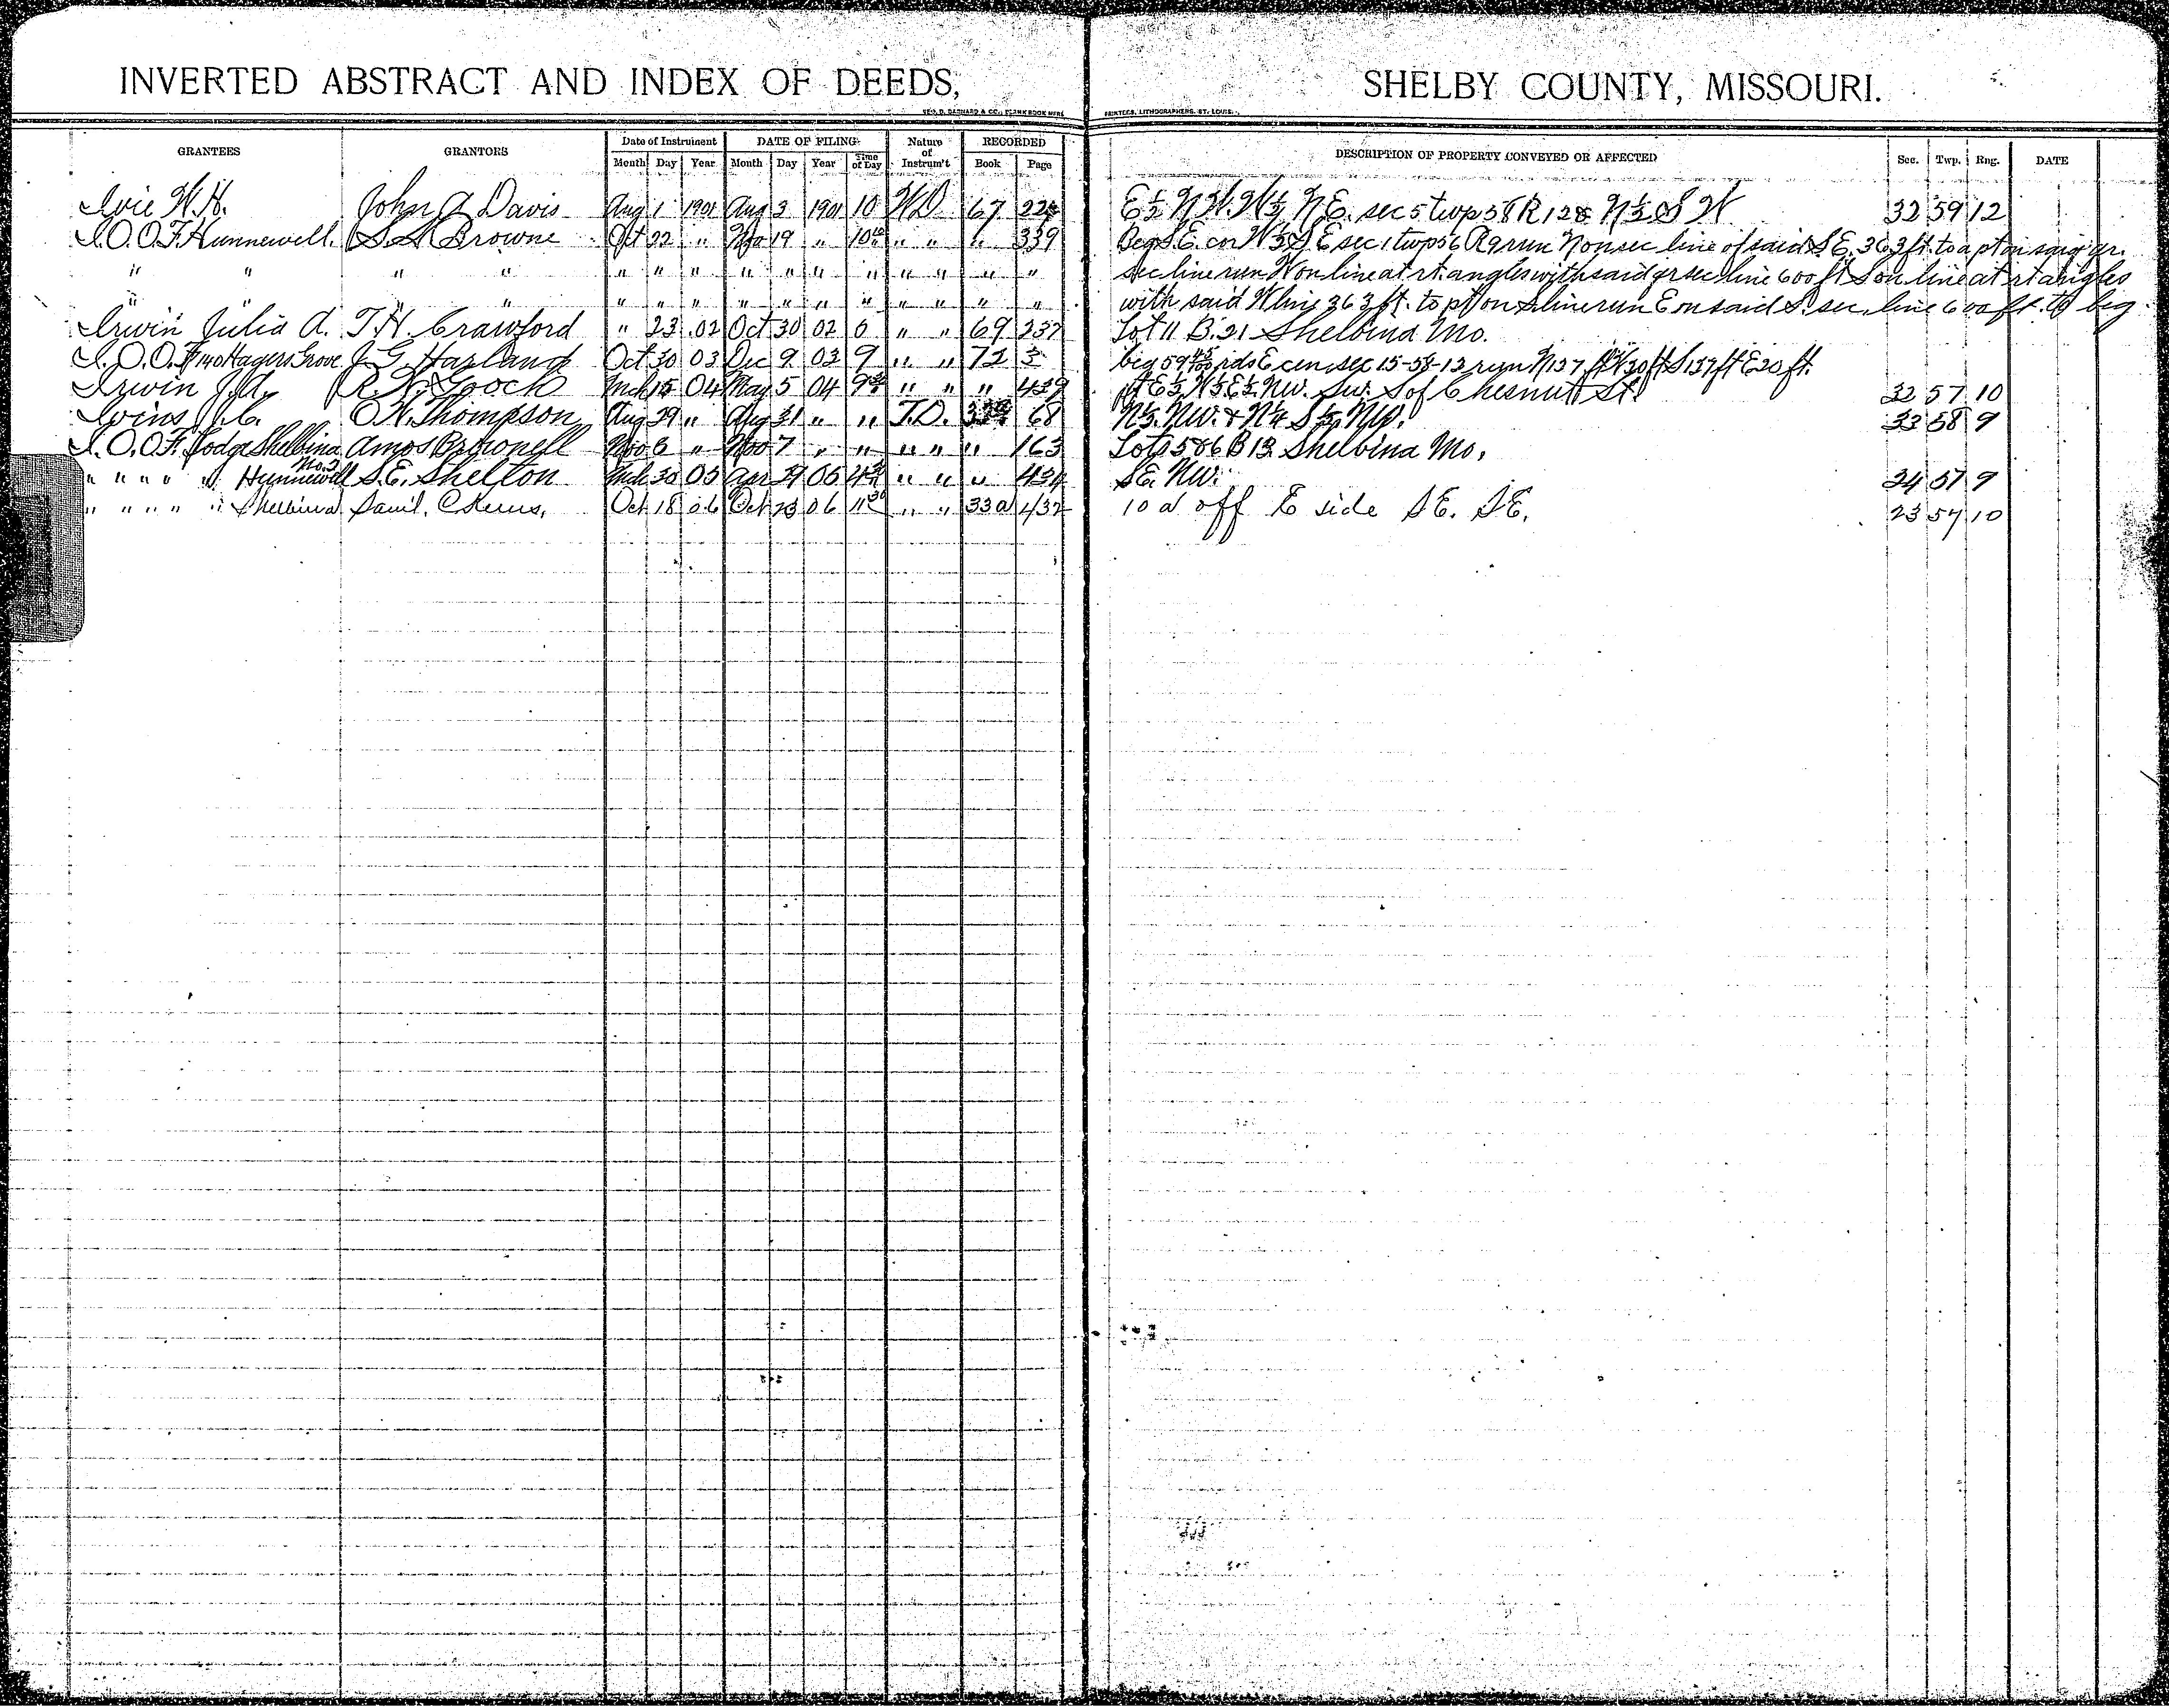 INVERTED ABSTRACT AND INDEX OF DEEDS, SHELBY COUNTY, MISSOURI.
GEO. D. BARNARD & CO., BLANK BOOK MFRS. PRINTERS, LITHOGRAPHERS, ST. LOUIS.
GRANTEES GRANTORS Date of Instrument DATE OF FILING Nature of Instrum't RECORDED DESCRIPTION OF PROPERTY CONVEYED OR AFFECTED Sec. Twp. Rng. DATE
Month Day Year Month Day Year Time of Day Book Page
Ivie W.H. John A Davis Aug 1 1901 Aug 3 1901 10 WD 67 224 E½ N W. W½ N E. sec 5 twp 58 R 12 & N½ S W 32 59 12
I.O.O.F. Hunnewell. Browne Oct 22 " Nov 19 " 10 " " " 339 Beg S.E. cor W½ S E sec 1 twp 56 R 9 run N on sec line of said S E. 363 ft. to a pt on said qr.
" " " " " " " " " " " " " " " sec line run W on line at rt angles with said qr sec line 600 ft S on line at rt angles
" " " " " " " " " " " " " " with said W line 363 ft. to pt on S line run E on said S. sec. line 600 ft. to beg
Irwin Julia A. T.H. Crawford " 23 02 Oct 30 02 " " 69 237 Lot 11 B. 21 Shelbina Mo.
I.O.O.F. Hagers Grove J G Harland Oct 30 03 Dec 9 03 9 " " 72 3 beg 59 45/100 rds E cen sec 15-58-12 run N 137 ft W 20 ft S 137 ft E 20 ft.
Irwin J.A. Gooch Mch 15 04 May 5 04 9 " " " 439 E½ W½ E½ NW. SW. S of Chesnut St. 32 57 10
Ivins J.C. O.W. Thompson Aug 29 " Aug 31 " " T.D. 68 N½ NW. & N¼ S½ NW. 33 58 9
I.O.O.F. Lodge Shelbina Amos Brownell Nov 6 " Nov 7 " " " " " 163 Lots 5 & 6 B 12 Shelbina Mo.
" " " " " Hunnewell S.E. Shelton Mch 30 05 Apr 29 05 " " " 434 SE. NW. 34 57 9
" " " " " Shelbina Saml. Oct 18 06 Oct 23 06 11 30 " " 33a 432 10 a off E side SE. SE. 23 57 10